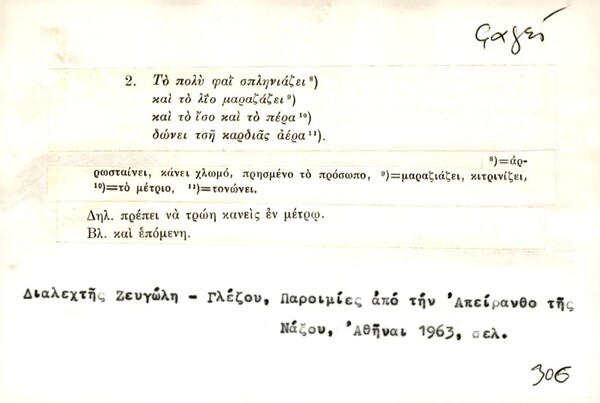 φαγεῖ
2. Τὸ πολὺ φαῒ σπληνιάζει ⁸)
καὶ τὸ λΐο μαραζάζει ⁹)
καὶ τὸ ἴσο καὶ τὸ πέρα ¹⁰)
δώνει τσῆ καρδιᾶς ἀέρα ¹¹).
⁸)=ἀρ-
ρωσταίνει, κάνει χλωμό, πρησμένο τὸ πρόσωπο, ⁹)=μαραζιάζει, κιτρινίζει,
¹⁰)=τὸ μέτριο, ¹¹)=τονώνει.
Δηλ. πρέπει νὰ τρώη κανεὶς ἐν μέτρῳ.
Βλ. καὶ ἑπόμενη.
Διαλεχτῆς Ζευγώλη - Γλέζου, Παροιμίες ἀπό τήν Ἀπείρανθο τῆς
Νάξου, Ἀθῆναι 1963, σελ.
306